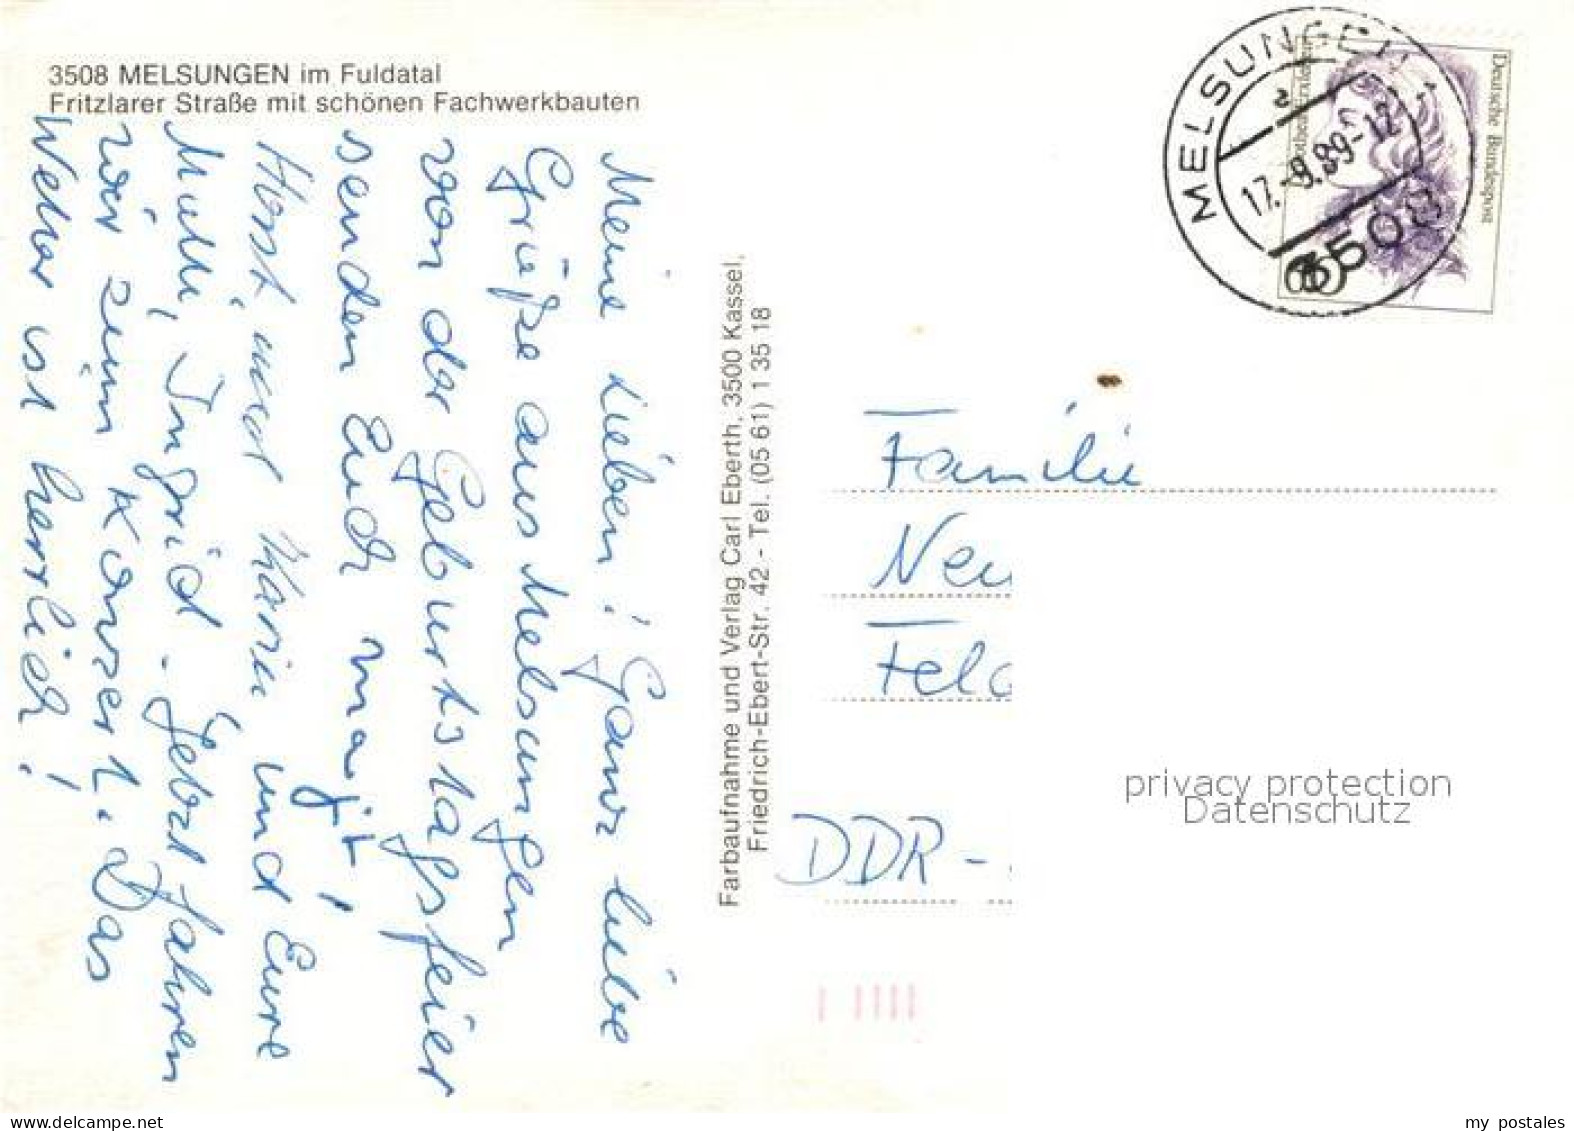 3508 MELSUNGEN im Fuldatal
Fritzlarer Straße mit schönen Fachwerkbauten
Meine Lieben! Ganz liebe
Grüße aus Melsungen
von der Geburtstagsfeier
senden Euch
Horst, und Karin, und Eure
Mutti, Ingrid. Jetzt fahren
wir zum Konzert. Das
Wetter ist herrlich!
Farbaufnahme und Verlag Carl Eberth, 3500 Kassel,
Friedrich-Ebert-Str. 42 - Tel. (05 61) 1 35 18
MELSUNGEN
a
17.-9.89-12
3508
Deutsche Bundespost
60
Familie
Neu
Feld
DDR -
privacy protection
Datenschutz
delcampe.net
my_postales